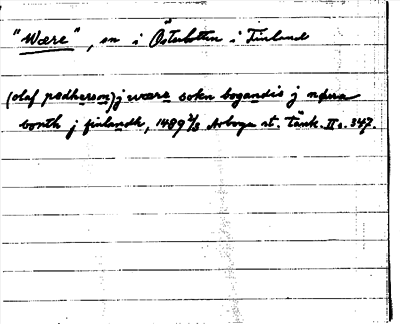 "Wære", sn i Österbotten i Finland
(olaf pædherson) j wære sokn bogandis j nørra
bonth j finlandh, 1489 2/3 Arboga st. tänk. II s. 347.